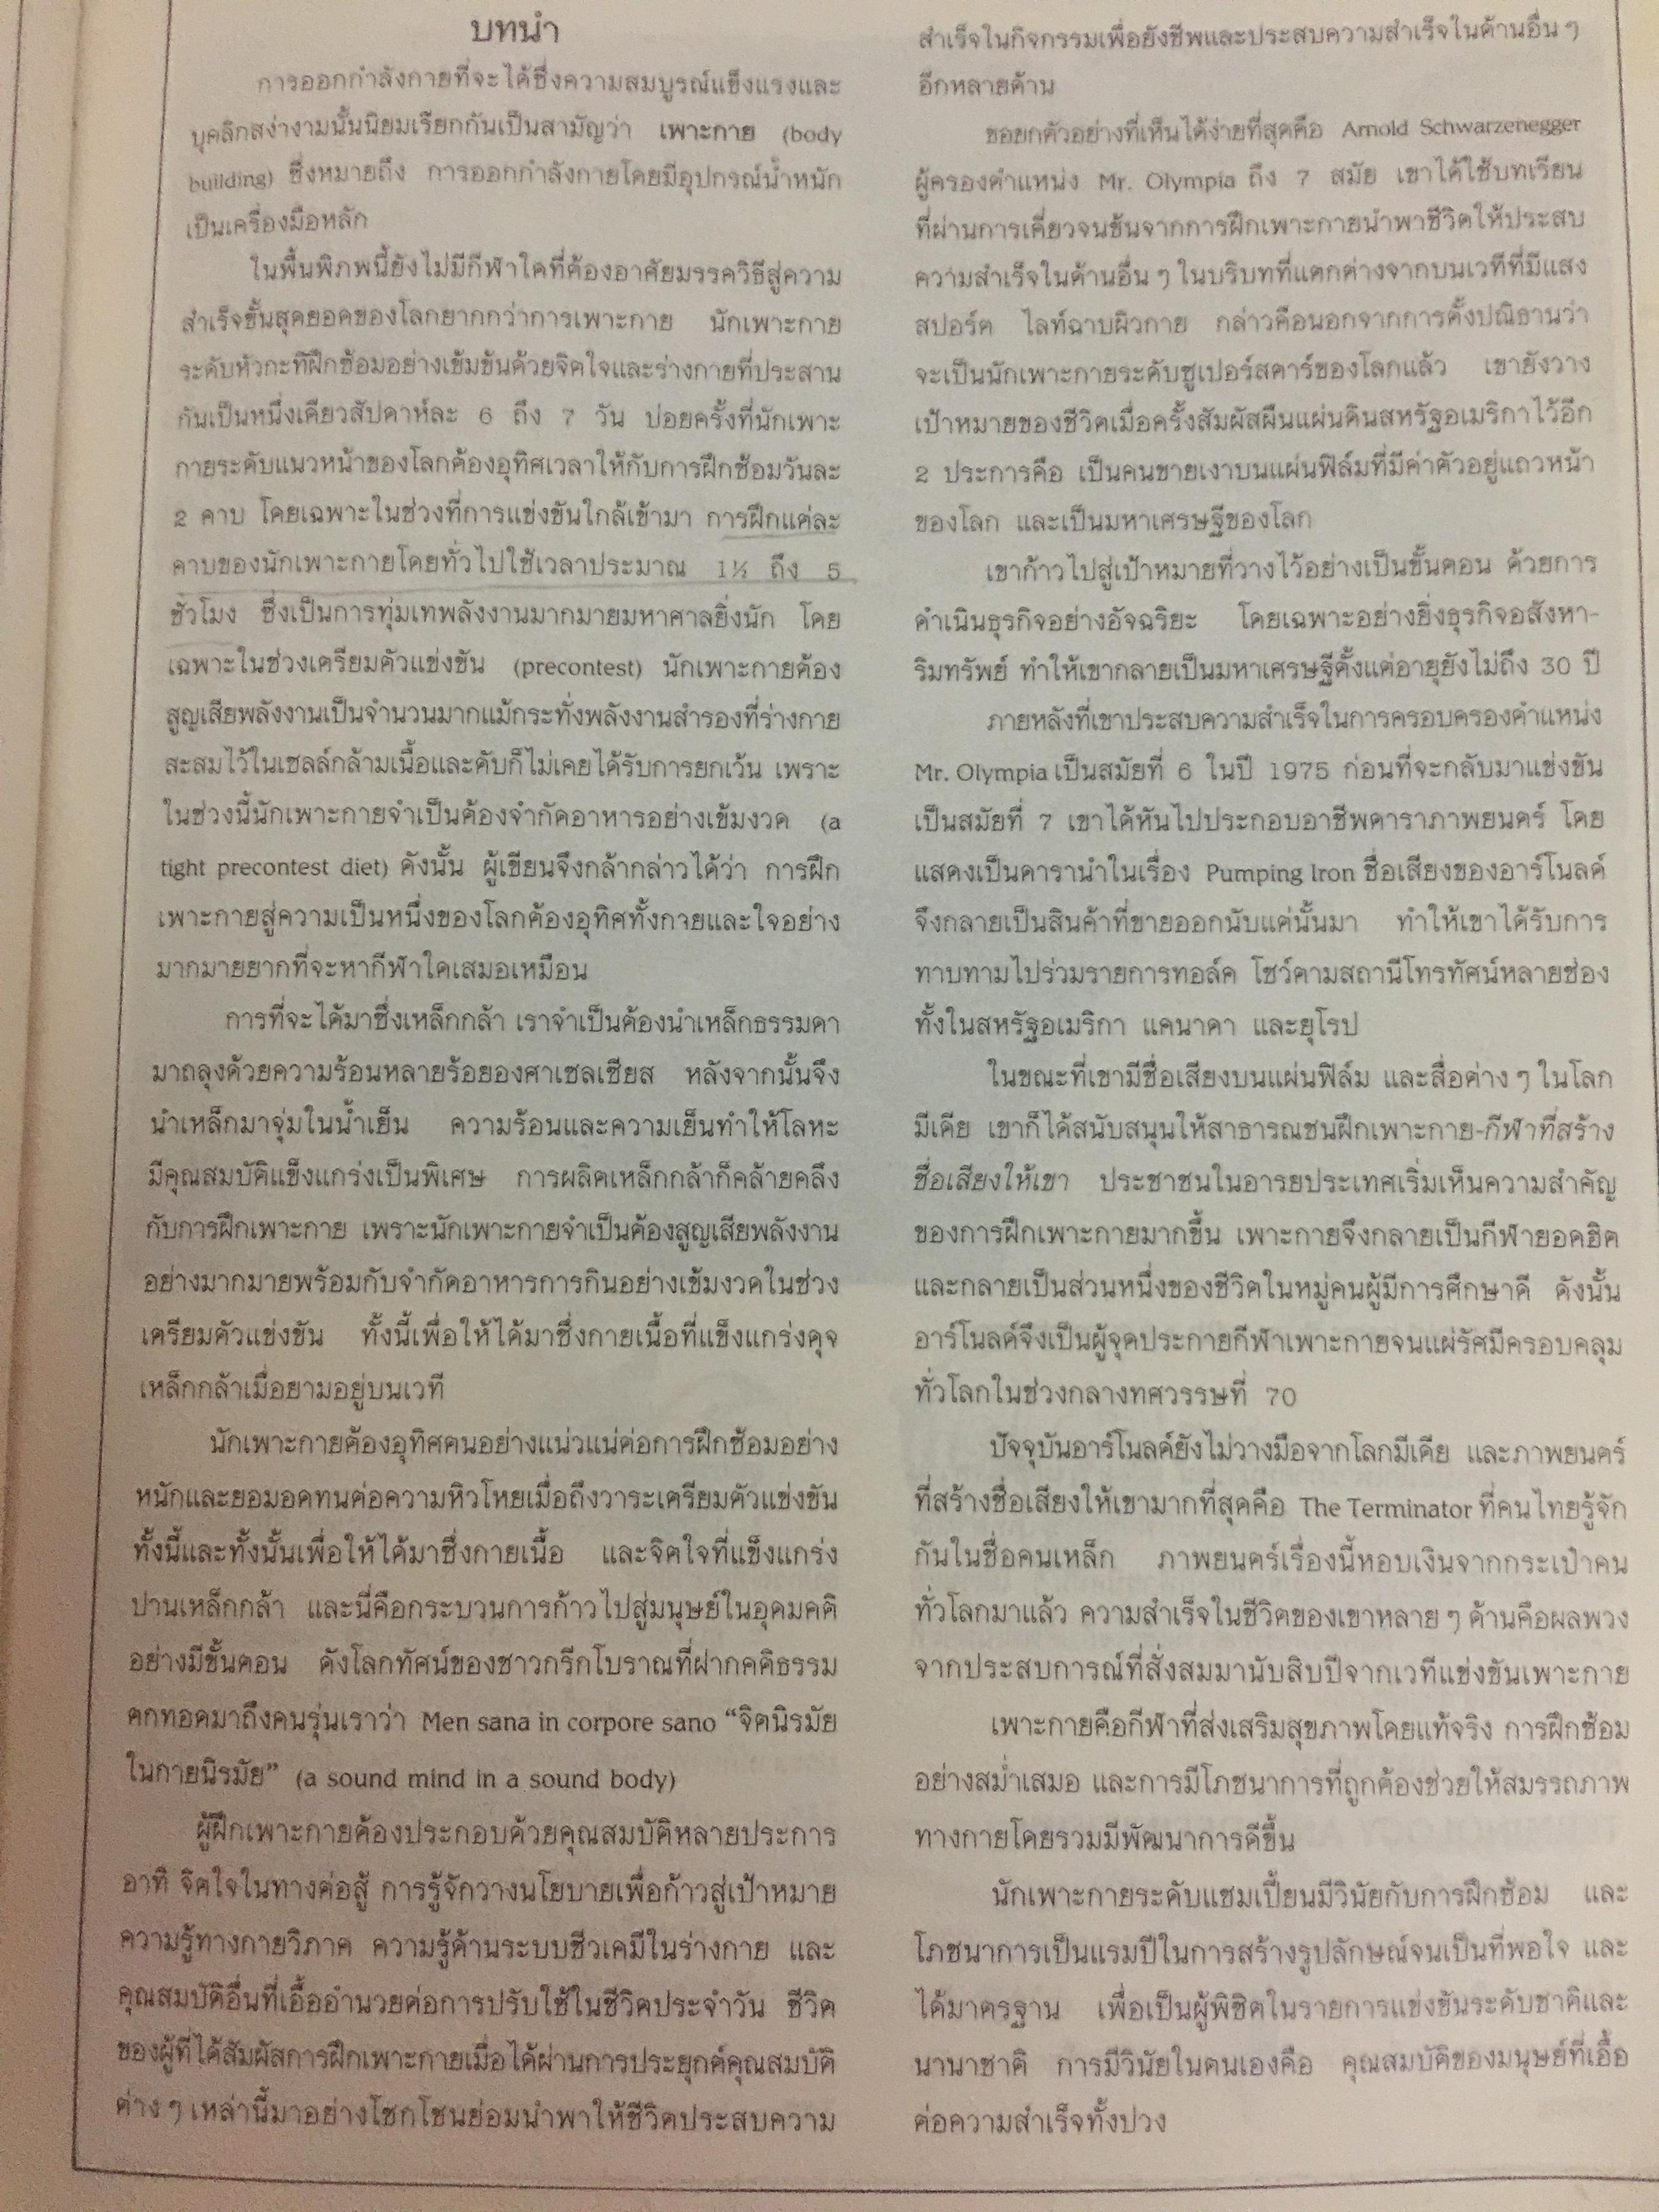 บทนำ
การออกกำลังกายที่จะได้ซึ่งความสมบูรณ์แข็งแรงและ
บุคลิกสง่างามนั้นนิยมเรียกกันเป็นสามัญว่า เพาะกาย (body
building) ซึ่งหมายถึง การออกกำลังกายโดยมีอุปกรณ์น้ำหนัก
เป็นเครื่องมือหลัก
ในพื้นพิภพนี้ยังไม่มีกีฬาใดที่ต้องอาศัยมรรควิธีสู่ความ
สำเร็จขั้นสุดยอดของโลกยากกว่าการเพาะกาย นักเพาะกาย
ระดับหัวกะทิฝึกซ้อมอย่างเข้มข้นด้วยจิตใจและร่างกายที่ประสาน
กันเป็นหนึ่งเดียวสัปดาห์ละ 6 ถึง 7 วัน บ่อยครั้งที่นักเพาะ
กายระดับแนวหน้าของโลกต้องอุทิศเวลาให้กับการฝึกซ้อมวันละ
2 คาบ โดยเฉพาะในช่วงที่การแข่งขันใกล้เข้ามา การฝึกแต่ละ
คาบของนักเพาะกายโดยทั่วไปใช้เวลาประมาณ 1½ ถึง 5
ชั่วโมง ซึ่งเป็นการทุ่มเทพลังงานมากมายมหาศาลยิ่งนัก โดย
เฉพาะในช่วงเตรียมตัวแข่งขัน (precontest) นักเพาะกายต้อง
สูญเสียพลังงานเป็นจำนวนมากแม้กระทั่งพลังงานสำรองที่ร่างกาย
สะสมไว้ในเซลล์กล้ามเนื้อและตับก็ไม่เคยได้รับการยกเว้น เพราะ
ในช่วงนี้นักเพาะกายจำเป็นต้องจำกัดอาหารอย่างเข้มงวด (a
tight precontest diet) ดังนั้น ผู้เขียนจึงกล้ากล่าวได้ว่า การฝึก
เพาะกายสู่ความเป็นหนึ่งของโลกต้องอุทิศทั้งกายและใจอย่าง
มากมายยากที่จะหากีฬาใดเสมอเหมือน
การที่จะได้มาซึ่งเหล็กกล้า เราจำเป็นต้องนำเหล็กธรรมดา
มาถลุงด้วยความร้อนหลายร้อยองศาเซลเซียส หลังจากนั้นจึง
นำเหล็กมาจุ่มในน้ำเย็น ความร้อนและความเย็นทำให้โลหะ
มีคุณสมบัติแข็งแกร่งเป็นพิเศษ การผลิตเหล็กกล้าก็คล้ายคลึง
กับการฝึกเพาะกาย เพราะนักเพาะกายจำเป็นต้องสูญเสียพลังงาน
อย่างมากมายพร้อมกับจำกัดอาหารการกินอย่างเข้มงวดในช่วง
เตรียมตัวแข่งขัน ทั้งนี้เพื่อให้ได้มาซึ่งกายเนื้อที่แข็งแกร่งดุจ
เหล็กกล้าเมื่อยามอยู่บนเวที
นักเพาะกายต้องอุทิศตนอย่างแน่วแน่ต่อการฝึกซ้อมอย่าง
หนักและยอมอดทนต่อความหิวโหยเมื่อถึงวาระเตรียมตัวแข่งขัน
ทั้งนี้และทั้งนั้นเพื่อให้ได้มาซึ่งกายเนื้อ และจิตใจที่แข็งแกร่ง
ปานเหล็กกล้า และนี่คือกระบวนการก้าวไปสู่มนุษย์ในอุดมคติ
อย่างมีขั้นตอน ดังโลกทัศน์ของชาวกรีกโบราณที่ฝากคติธรรม
ตกทอดมาถึงคนรุ่นเราว่า Men sana in corpore sano “จิตนิรมัย
ในกายนิรมัย” (a sound mind in a sound body)
ผู้ฝึกเพาะกายต้องประกอบด้วยคุณสมบัติหลายประการ
อาทิ จิตใจในทางต่อสู้ การรู้จักวางนโยบายเพื่อก้าวสู่เป้าหมาย
ความรู้ทางกายวิภาค ความรู้ด้านระบบชีวเคมีในร่างกาย และ
คุณสมบัติอื่นที่เอื้ออำนวยต่อการปรับใช้ในชีวิตประจำวัน ชีวิต
ของผู้ที่ได้สัมผัสการฝึกเพาะกายเมื่อได้ผ่านการประยุกต์คุณสมบัติ
ต่าง ๆ เหล่านี้มาอย่างโชกโชนย่อมนำพาให้ชีวิตประสบความ
สำเร็จในกิจกรรมเพื่อยังชีพและประสบความสำเร็จในด้านอื่น ๆ
อีกหลายด้าน
ขอยกตัวอย่างที่เห็นได้ง่ายที่สุดคือ Arnold Schwarzenegger
ผู้ครองตำแหน่ง Mr. Olympia ถึง 7 สมัย เขาได้ใช้บทเรียน
ที่ผ่านการเคี่ยวจนข้นจากการฝึกเพาะกายนำพาชีวิตให้ประสบ
ความสำเร็จในด้านอื่น ๆ ในบริบทที่แตกต่างจากบนเวทีที่มีแสง
สปอร์ต ไลท์ฉาบผิวกาย กล่าวคือนอกจากการตั้งปณิธานว่า
จะเป็นนักเพาะกายระดับซูเปอร์สตาร์ของโลกแล้ว เขายังวาง
เป้าหมายของชีวิตเมื่อครั้งสัมผัสผืนแผ่นดินสหรัฐอเมริกาไว้อีก
2 ประการคือ เป็นคนขายเงาบนแผ่นฟิล์มที่มีค่าตัวอยู่แถวหน้า
ของโลก และเป็นมหาเศรษฐีของโลก
เขาก้าวไปสู่เป้าหมายที่วางไว้อย่างเป็นขั้นตอน ด้วยการ
ดำเนินธุรกิจอย่างอัจฉริยะ โดยเฉพาะอย่างยิ่งธุรกิจอสังหา-
ริมทรัพย์ ทำให้เขากลายเป็นมหาเศรษฐีตั้งแต่อายุยังไม่ถึง 30 ปี
ภายหลังที่เขาประสบความสำเร็จในการครอบครองตำแหน่ง
Mr. Olympia เป็นสมัยที่ 6 ในปี 1975 ก่อนที่จะกลับมาแข่งขัน
เป็นสมัยที่ 7 เขาได้หันไปประกอบอาชีพดาราภาพยนตร์ โดย
แสดงเป็นดารานำในเรื่อง Pumping Iron ชื่อเสียงของอาร์โนลด์
จึงกลายเป็นสินค้าที่ขายออกนับแต่นั้นมา ทำให้เขาได้รับการ
ทาบทามไปร่วมรายการทอล์ค โชว์ตามสถานีโทรทัศน์หลายช่อง
ทั้งในสหรัฐอเมริกา แคนาดา และยุโรป
ในขณะที่เขามีชื่อเสียงบนแผ่นฟิล์ม และสื่อต่าง ๆ ในโลก
มีเดีย เขาก็ได้สนับสนุนให้สาธารณชนฝึกเพาะกาย-กีฬาที่สร้าง
ชื่อเสียงให้เขา ประชาชนในอารยประเทศเริ่มเห็นความสำคัญ
ของการฝึกเพาะกายมากขึ้น เพาะกายจึงกลายเป็นกีฬายอดฮิต
และกลายเป็นส่วนหนึ่งของชีวิตในหมู่คนผู้มีการศึกษาดี ดังนั้น
อาร์โนลด์จึงเป็นผู้จุดประกายกีฬาเพาะกายจนแผ่รัศมีครอบคลุม
ทั่วโลกในช่วงกลางทศวรรษที่ 70
ปัจจุบันอาร์โนลด์ยังไม่วางมือจากโลกมีเดีย และภาพยนตร์
ที่สร้างชื่อเสียงให้เขามากที่สุดคือ The Terminator ที่คนไทยรู้จัก
กันในชื่อคนเหล็ก ภาพยนตร์เรื่องนี้หอบเงินจากกระเป๋าคน
ทั่วโลกมาแล้ว ความสำเร็จในชีวิตของเขาหลาย ๆ ด้านคือผลพวง
จากประสบการณ์ที่สั่งสมมานับสิบปีจากเวทีแข่งขันเพาะกาย
เพาะกายคือกีฬาที่ส่งเสริมสุขภาพโดยแท้จริง การฝึกซ้อม
อย่างสม่ำเสมอ และการมีโภชนาการที่ถูกต้องช่วยให้สมรรถภาพ
ทางกายโดยรวมมีพัฒนาการดีขึ้น
นักเพาะกายระดับแชมเปี้ยนมีวินัยกับการฝึกซ้อม และ
โภชนาการเป็นแรมปีในการสร้างรูปลักษณ์จนเป็นที่พอใจ และ
ได้มาตรฐาน เพื่อเป็นผู้พิชิตในรายการแข่งขันระดับชาติและ
นานาชาติ การมีวินัยในตนเองคือ คุณสมบัติของมนุษย์ที่เอื้อ
ต่อความสำเร็จทั้งปวง